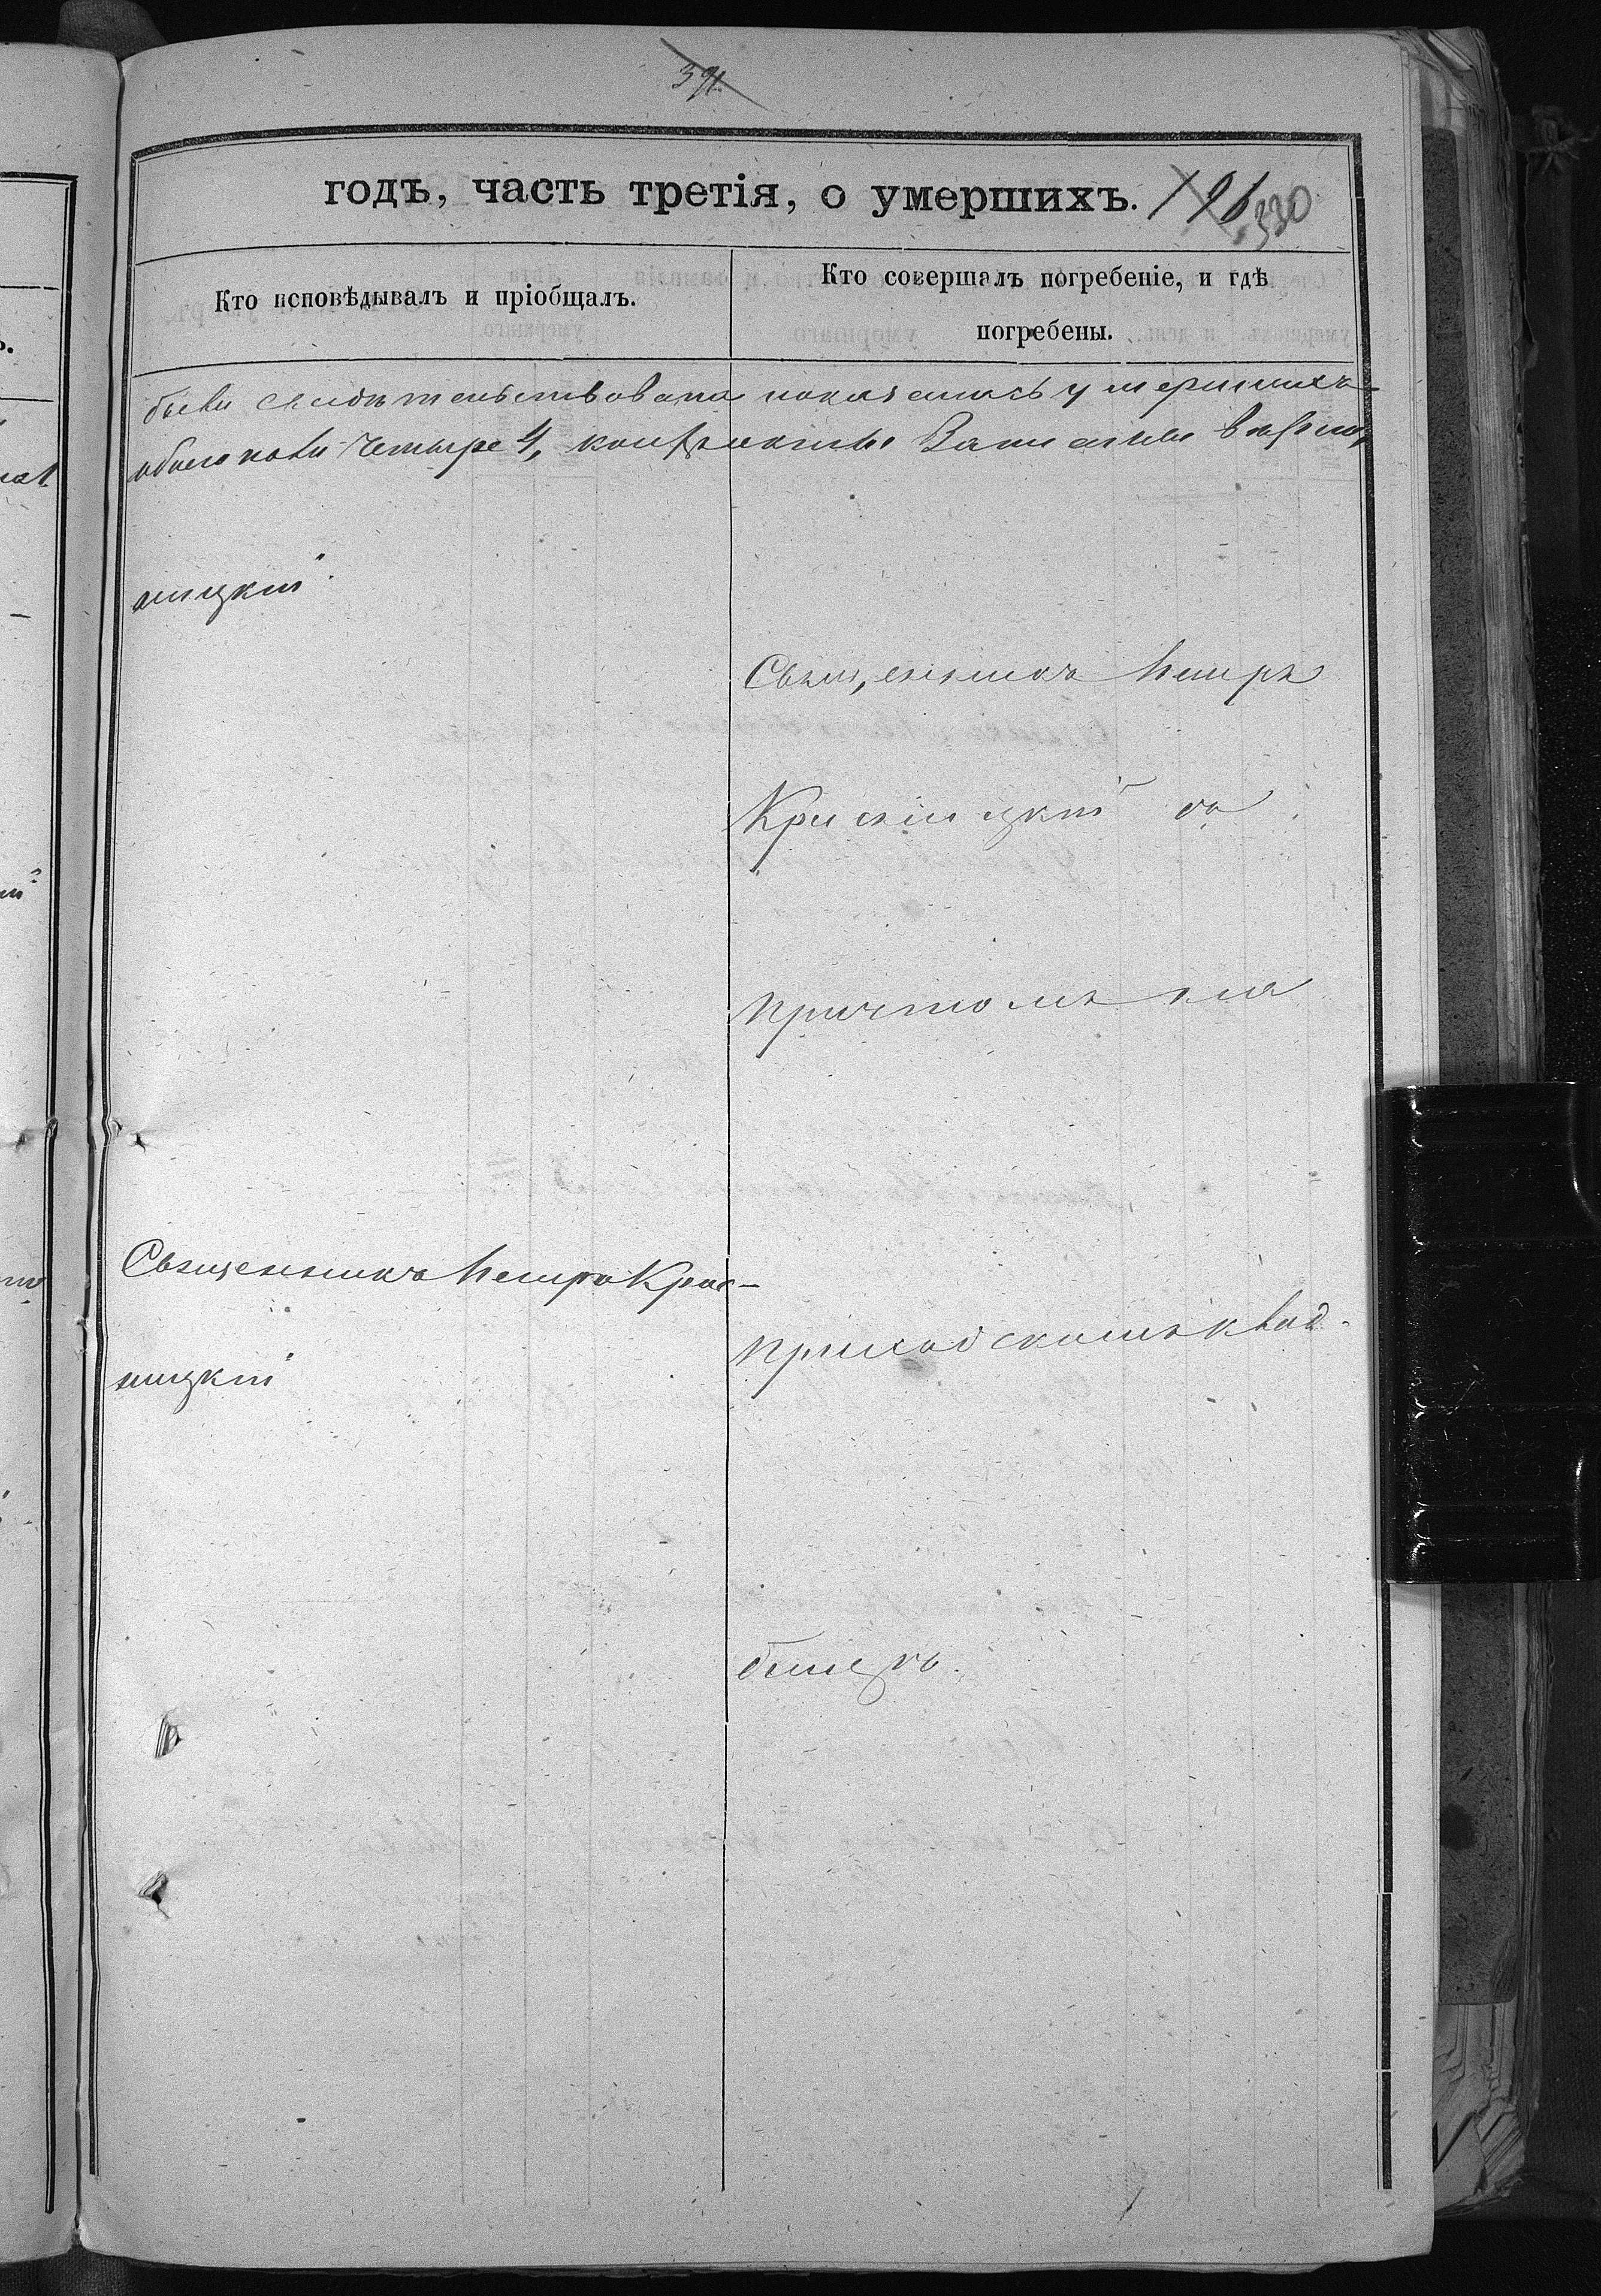 391
годъ, часть третія, о умершихъ. 196 330
Кто исповѣдывалъ и пріобщалъ.
Кто совершалъ погребеніе, и гдѣ
погребены.
были свидѣтельствованы оказалось умершихъ
обоего пола четыре 4,
ницкій
Священникъ Петръ
Крисницкій съ
причтомъ на
Священникъ Петръ Крис-
ницкій
приходскомъ клад-
бищѣ.